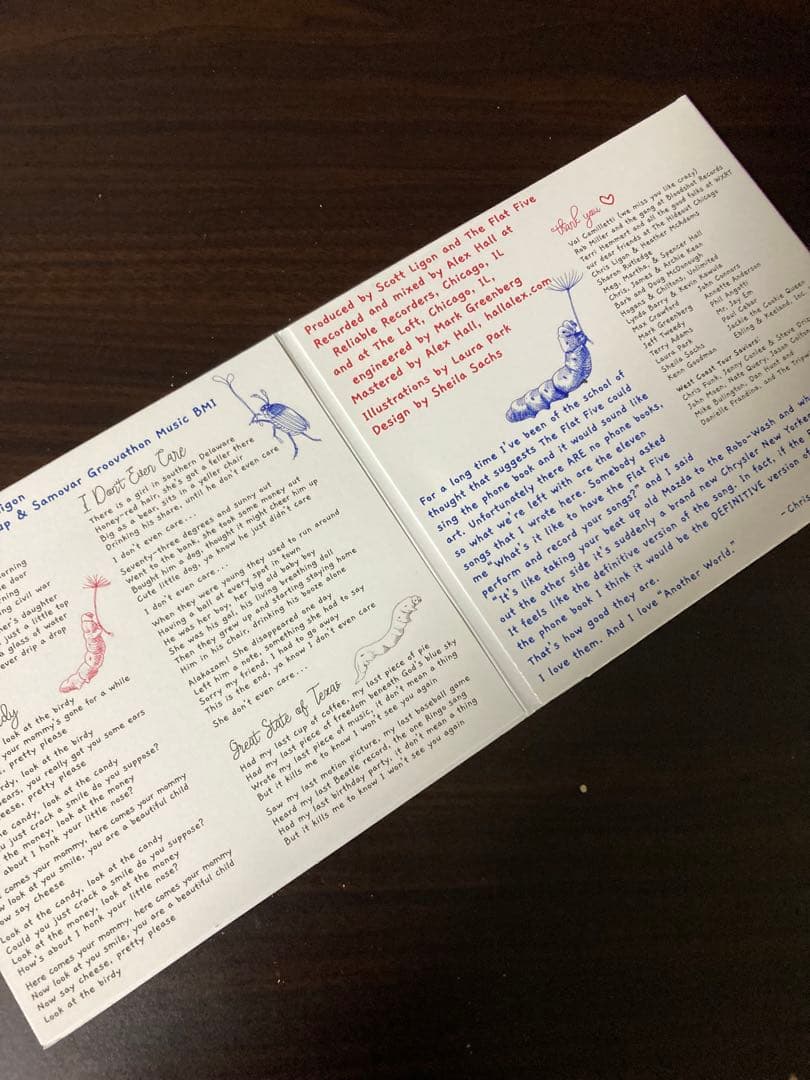 Ligon
& Samovar Groovathon Music BMI
look at the birdy
your mommy's gone for a while
pretty please
look at the birdy
you really got you some ears
pretty please
candy, look at the candy
just crack a smile do you suppose?
the money, look at the money
about I honk your little nose?
comes your mommy, here comes your mommy
look at you smile, you are a beautiful child
say cheese
Look at the candy, look at the candy
Could you just crack a smile do you suppose?
Look at the money, look at the money
How's about I honk your little nose?
Here comes your mommy, here comes your mommy
Now look at you smile, you are a beautiful child
Now say cheese, pretty please
Look at the birdy
civil war
daughter
just a little top
a glass of water
drip a drop
I Don't Even Care
There is a girl in southern Delaware
Honey-red hair, she's got a feller there
Big as a bear, sits in a yeller chair
Drinking his share, until he don't even care
I don't even care...
Seventy-three degrees and sunny out
Went to the bank, she took some money out
Bought him a dog, thought it might cheer him up
Cute little dog, ya know he just didn't care
I don't even care...
When they were young they used to run around
Having a ball at every spot in town
He was her boy, her big old baby boy
She was his gal, his living breathing doll
Then they grew up and starting staying home
Him in his chair, drinking his booze alone
Alakazam! She disappeared one day
Left him a note, something she had to say
Sorry my friend, I had to go away
This is the end, ya know I don't even care
She don't even care...
Great State of Texas
Had my last cup of coffee, my last piece of pie
Had my last piece of freedom beneath God's blue sky
Wrote my last piece of music, it don't mean a thing
But it kills me to know I won't see you again
Saw my last motion picture, my last baseball game
Heard my last Beatle record, the one Ringo sang
Had my last birthday party, it don't mean a thing
But it kills me to know I won't see you again
Produced by Scott Ligon and The Flat Five
Recorded and mixed by Alex Hall at
Reliable Recorders, Chicago, IL
and at The Loft, Chicago, IL,
engineered by Mark Greenberg
Mastered by Alex Hall, hallalex.com
Illustrations by Laura Park
Design by Sheila Sachs
thank you
Val Camilletti (we miss you like crazy)
Rob Miller and the gang at Bloodshot Records
Terri Hemmert and all the good folks at WXRT
our dear friends at The Hideout Chicago
Chris Ligon & Heather McAdams
Sharon Rutledge
Meg, Martha, & Spencer Hall
Chris, James & Archie Kean
Barb and Doug McDonough
Hogans & Chiltons, Unlimited
Lynda Barry & Kevin Kawula
Max Crawford
Mark Greenberg
Jeff Tweedy
Terry Adams
Laura Park
Sheila Sachs
Kenn Goodman
John Connors
Annette Anderson
Phil Angotti
Mr. Jay Em
Paul Cebar
Jackie the Cookie Queen
Ebling & Keeland, Inc.
West Coast Tour Saviors:
Chris Funk, Jenny Conlee & Steve
John Moen, Nate Query, Jason
Mike Bulington, Dan Hunt and
Danielle Frandina, and The
For a long time I've been of the school of
thought that suggests The Flat Five could
sing the phone book and it would sound like
art. Unfortunately there ARE no phone books,
so what we're left with are the eleven
songs that I wrote here. Somebody asked
me "What's it like to have the Flat Five
perform and record your songs?" and I said
"It's like taking your beat up old Mazda to the Robo-Wash and
out the other side it's suddenly a brand new Chrysler New Yorker
It feels like the definitive version of the song. In fact, if the
the phone book I think it would be the DEFINITIVE version of
That's how good they are.
I love them. And I love "Another World."